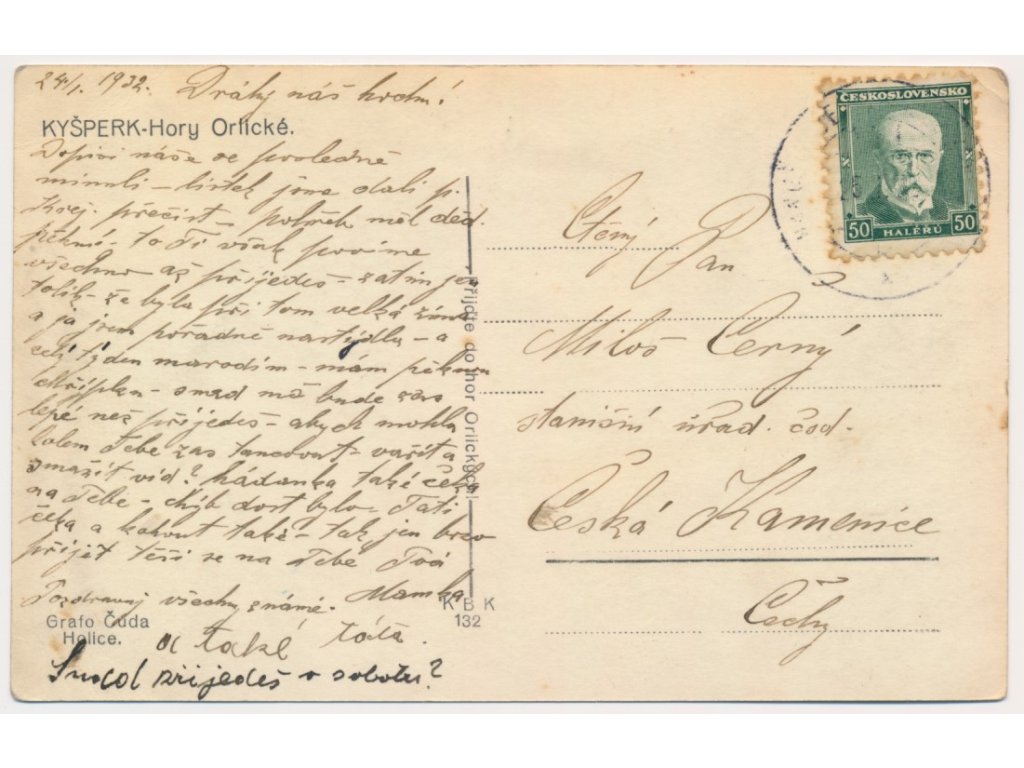 24/1. 1932. Drahý náš hochu!
KYŠPERK-Hory Orlické.
Dopisy náše se posledně
minuli - lístek jsme dali p.
Krej. přečíst - pohřeb měl děd.
pěkný - to Ti však povíme
všechno až přijedeš - zatím jen
tolik - že byla při tom velká zima
a já jsem pořádně nastydla - a
celý týden marodím - mám pěknou
chřipku - snad mě bude zas
lépe než přijedeš - abych mohla
kolem Tebe zas tancovat - vařit a
smažit viď? hádanka také čeká
na Tebe - chyb dost bylo - Tati
čeká a kohout také - tak jen brzo
přijeť těší se na Tebe Tvá
Pozdravuj všechny známé. Mamka
Grafo Čuda
Holice.
a také táta.
Snad přijedeš v sobotu?
Přijďte do hor Orlických!
K B K
132
ČESKOSLOVENSKO
50 HALÉRŮ 50
Ctěný Pan
Miloš Černý
staniční úřad. čsd.
Česká Kamenice
Čechy